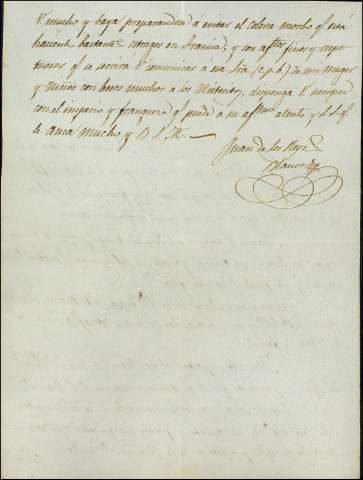 V. mucho y baya preparandose a evitar el colera morbo qe. está
haciendo bastante estragos en Francia, y con aftos. finos y respe
tuosos qe. se servirá V. comunicar a esa Sra. (c. p. b.) de mi muger
y niños con besos muchos a los Nietecitos, disponga V. siempre
con el imperio y franqueza qe. puede a su aftmo. atento y S. S. qe.
le ama mucho y B. S. M.
Juan de los Reyes
Blanco